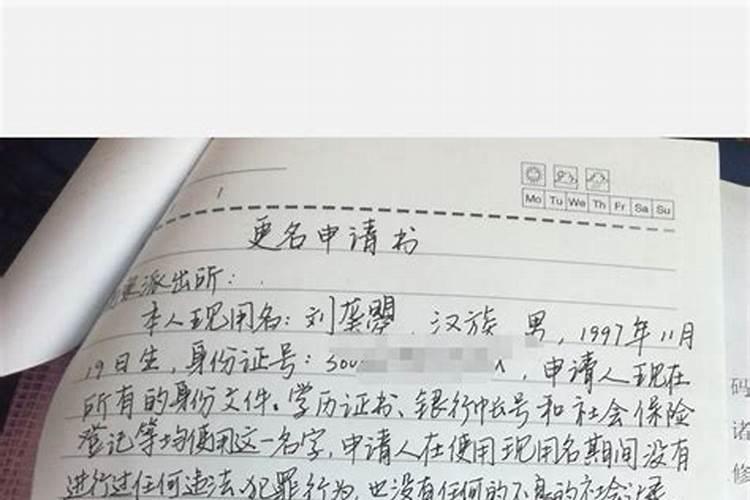 Mo Tu We Th Fr Sa Su
更名申请书
派出所：
本人现用名：刘 汉族 男，1997年11月
19日生，身份证号：，申请人现在
所有的身份文件。学历证书、银行帐号和社会保险
登记等均使用这一名字，申请人在使用现用名期间没有
进行过任何违法、犯罪行为，也没有任何的不良的社会记录
码
诸
修